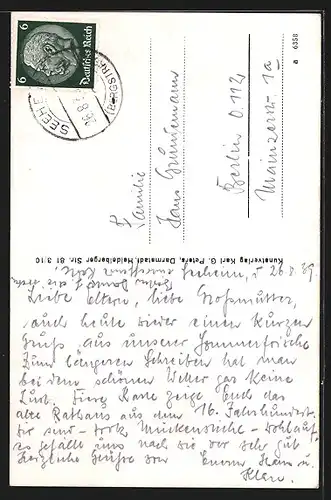 6 6
Deutsches Reich
SEEHE
26.8.
(BERGSTR
Familie
Hans Grüntemann
Berlin O.112
Mainzerstr. 1a
a 6358
Kunstverlag Karl G. Peters, Darmstadt, Heidelberger Str. 81 3/10
Besten Dank f. die heute
eingetroffene Karte.
Seeheim, d. 26.8.39.
Liebe Eltern, liebe Großmutter,
auch heute wieder einen kurzen
Gruß aus unserer Sommerfrische
Zum längeren Schreiben hat man
bei dem schönen Wetter gar keine
Lust. Diese Karte zeigt Euch das
alte Rathaus aus dem 16. Jahrhundert.
Wir sind trotz Mückenstiche wohlauf,
es gefällt uns nach wie vor sehr gut
Herzliche Grüße von Euerm Hans u.
Klara.